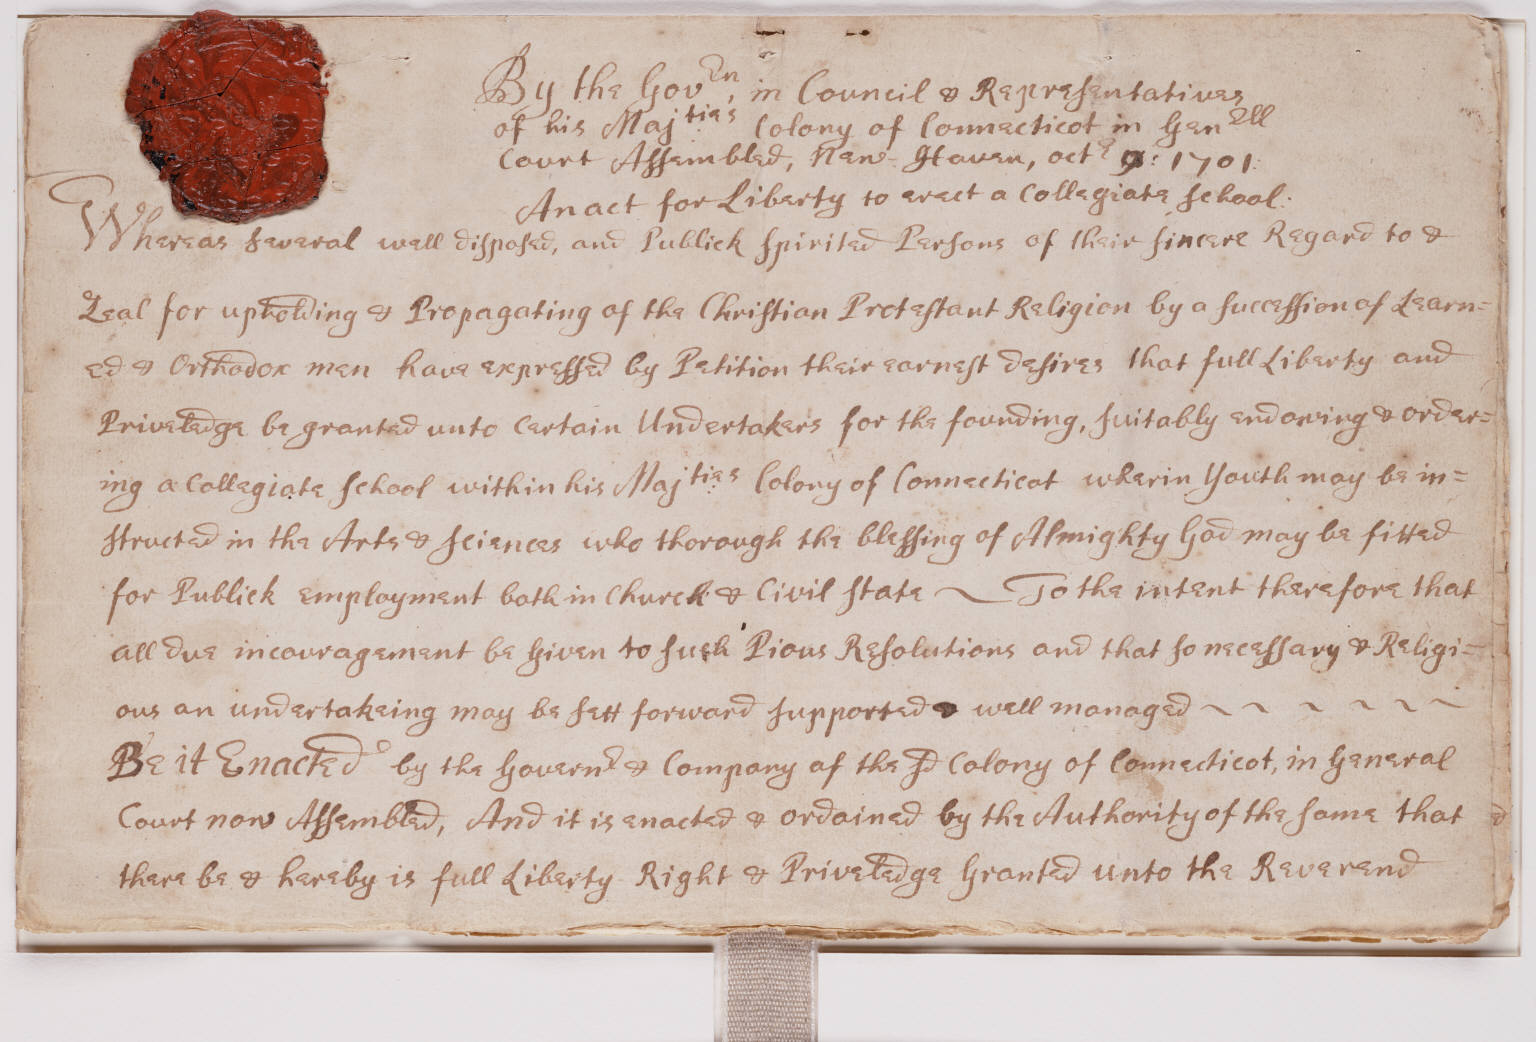 By the Govrn, in Council & Representatives
of his Majties Colony of Connecticot in Genrll
Court Assembled, New-Haven, octr 9: 1701:
An act for Liberty to erect a Collegiate School:
Whereas several well disposed, and Publick spirited Persons of their sincere Regard to &
Zeal for upholding & Propagating of the Christian Protestant Religion by a succession of Learn=
ed & Orthodox men have expressed by Petition their earnest desires that full Liberty and
Priveledge be granted unto Certain Undertakers for the founding, suitably endowing & order=
ing a Collegiate School within his Majties Colony of Connecticot wherin Youth may be in=
structed in the Arts & Sciences who thorough the blessing of Almighty God may be fitted
for Publick employment both in Church & Civil State ~ To the intent therefore that
all due incouragement be Given to such Pious Resolutions and that so necessary & Religi=
ous an undertakeing may be sett forward supported & well managed ~ ~ ~ ~ ~ ~
Be it Enacted by the Governr & Company of the sd Colony of Connecticot, in General
Court now Assembled, And it is enacted & ordained by the Authority of the same that
there be & hereby is full Liberty Right & Priveledge Granted unto the Reverend